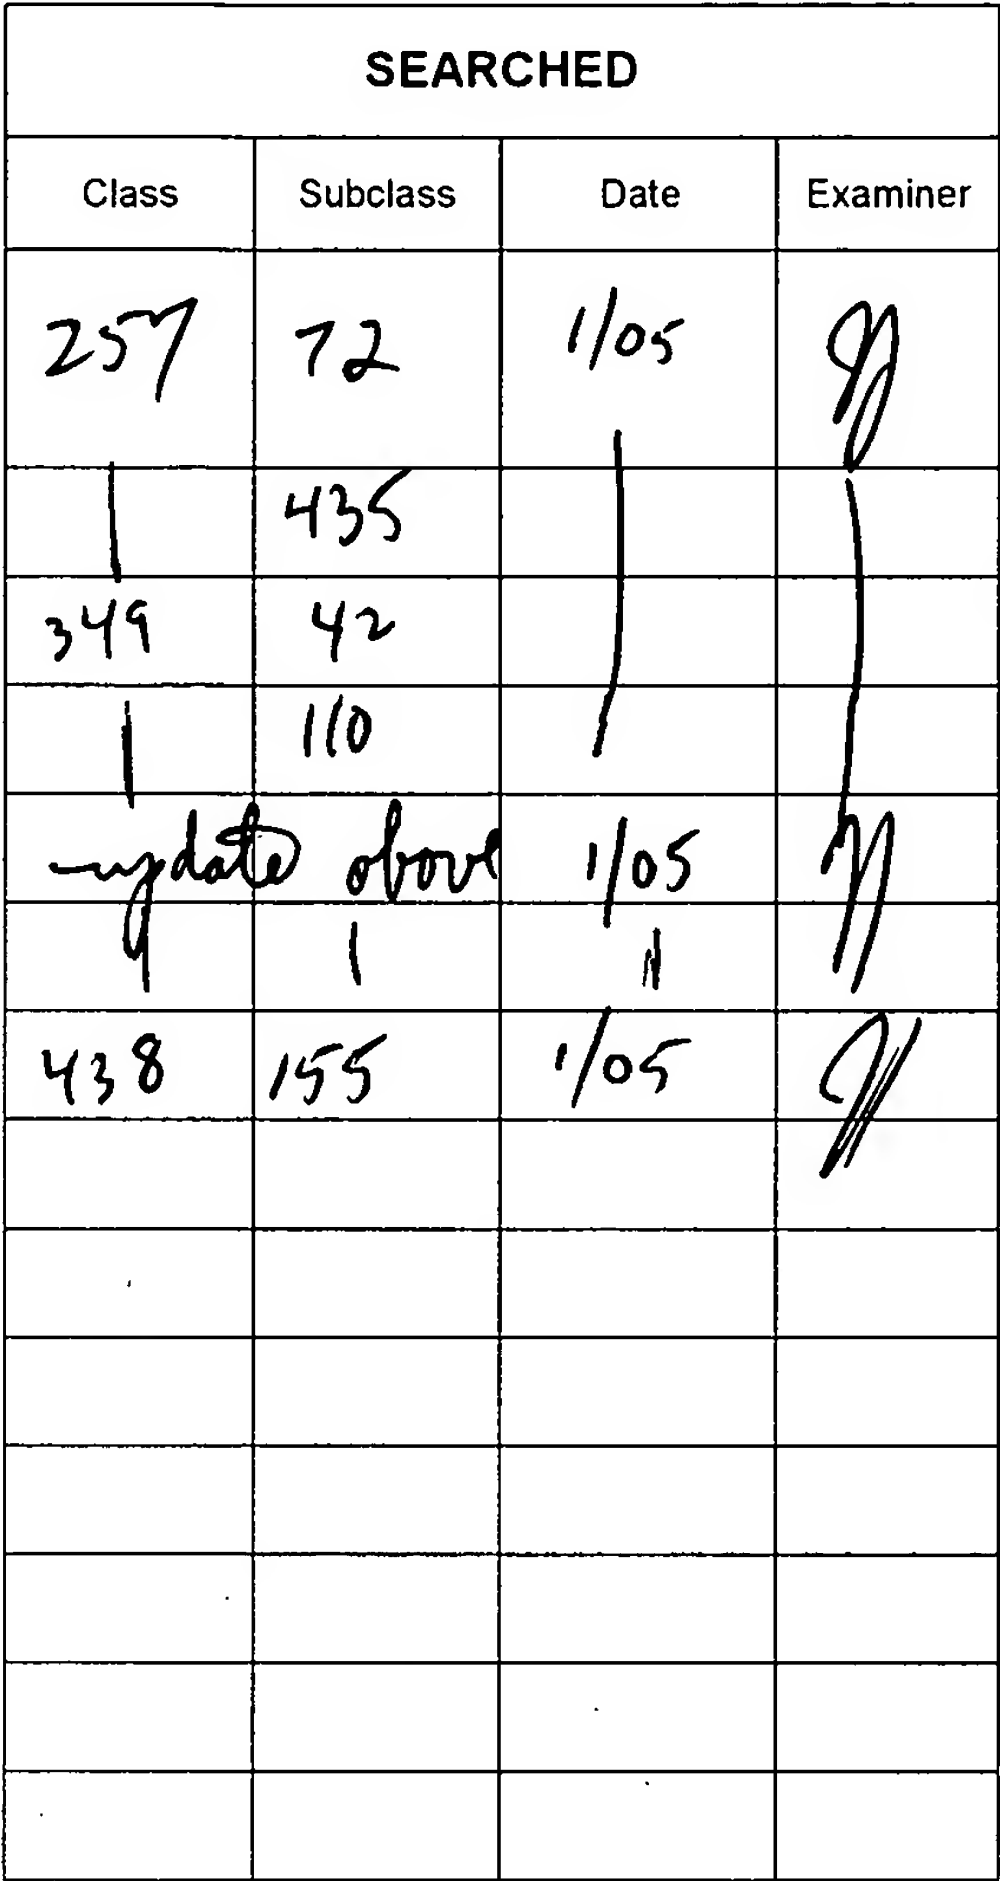 SEARCHED
Class Subclass Date Examiner
257 72 1/05
| 435
349 42
| 110
update above 1/05
| "
438 155 1/05